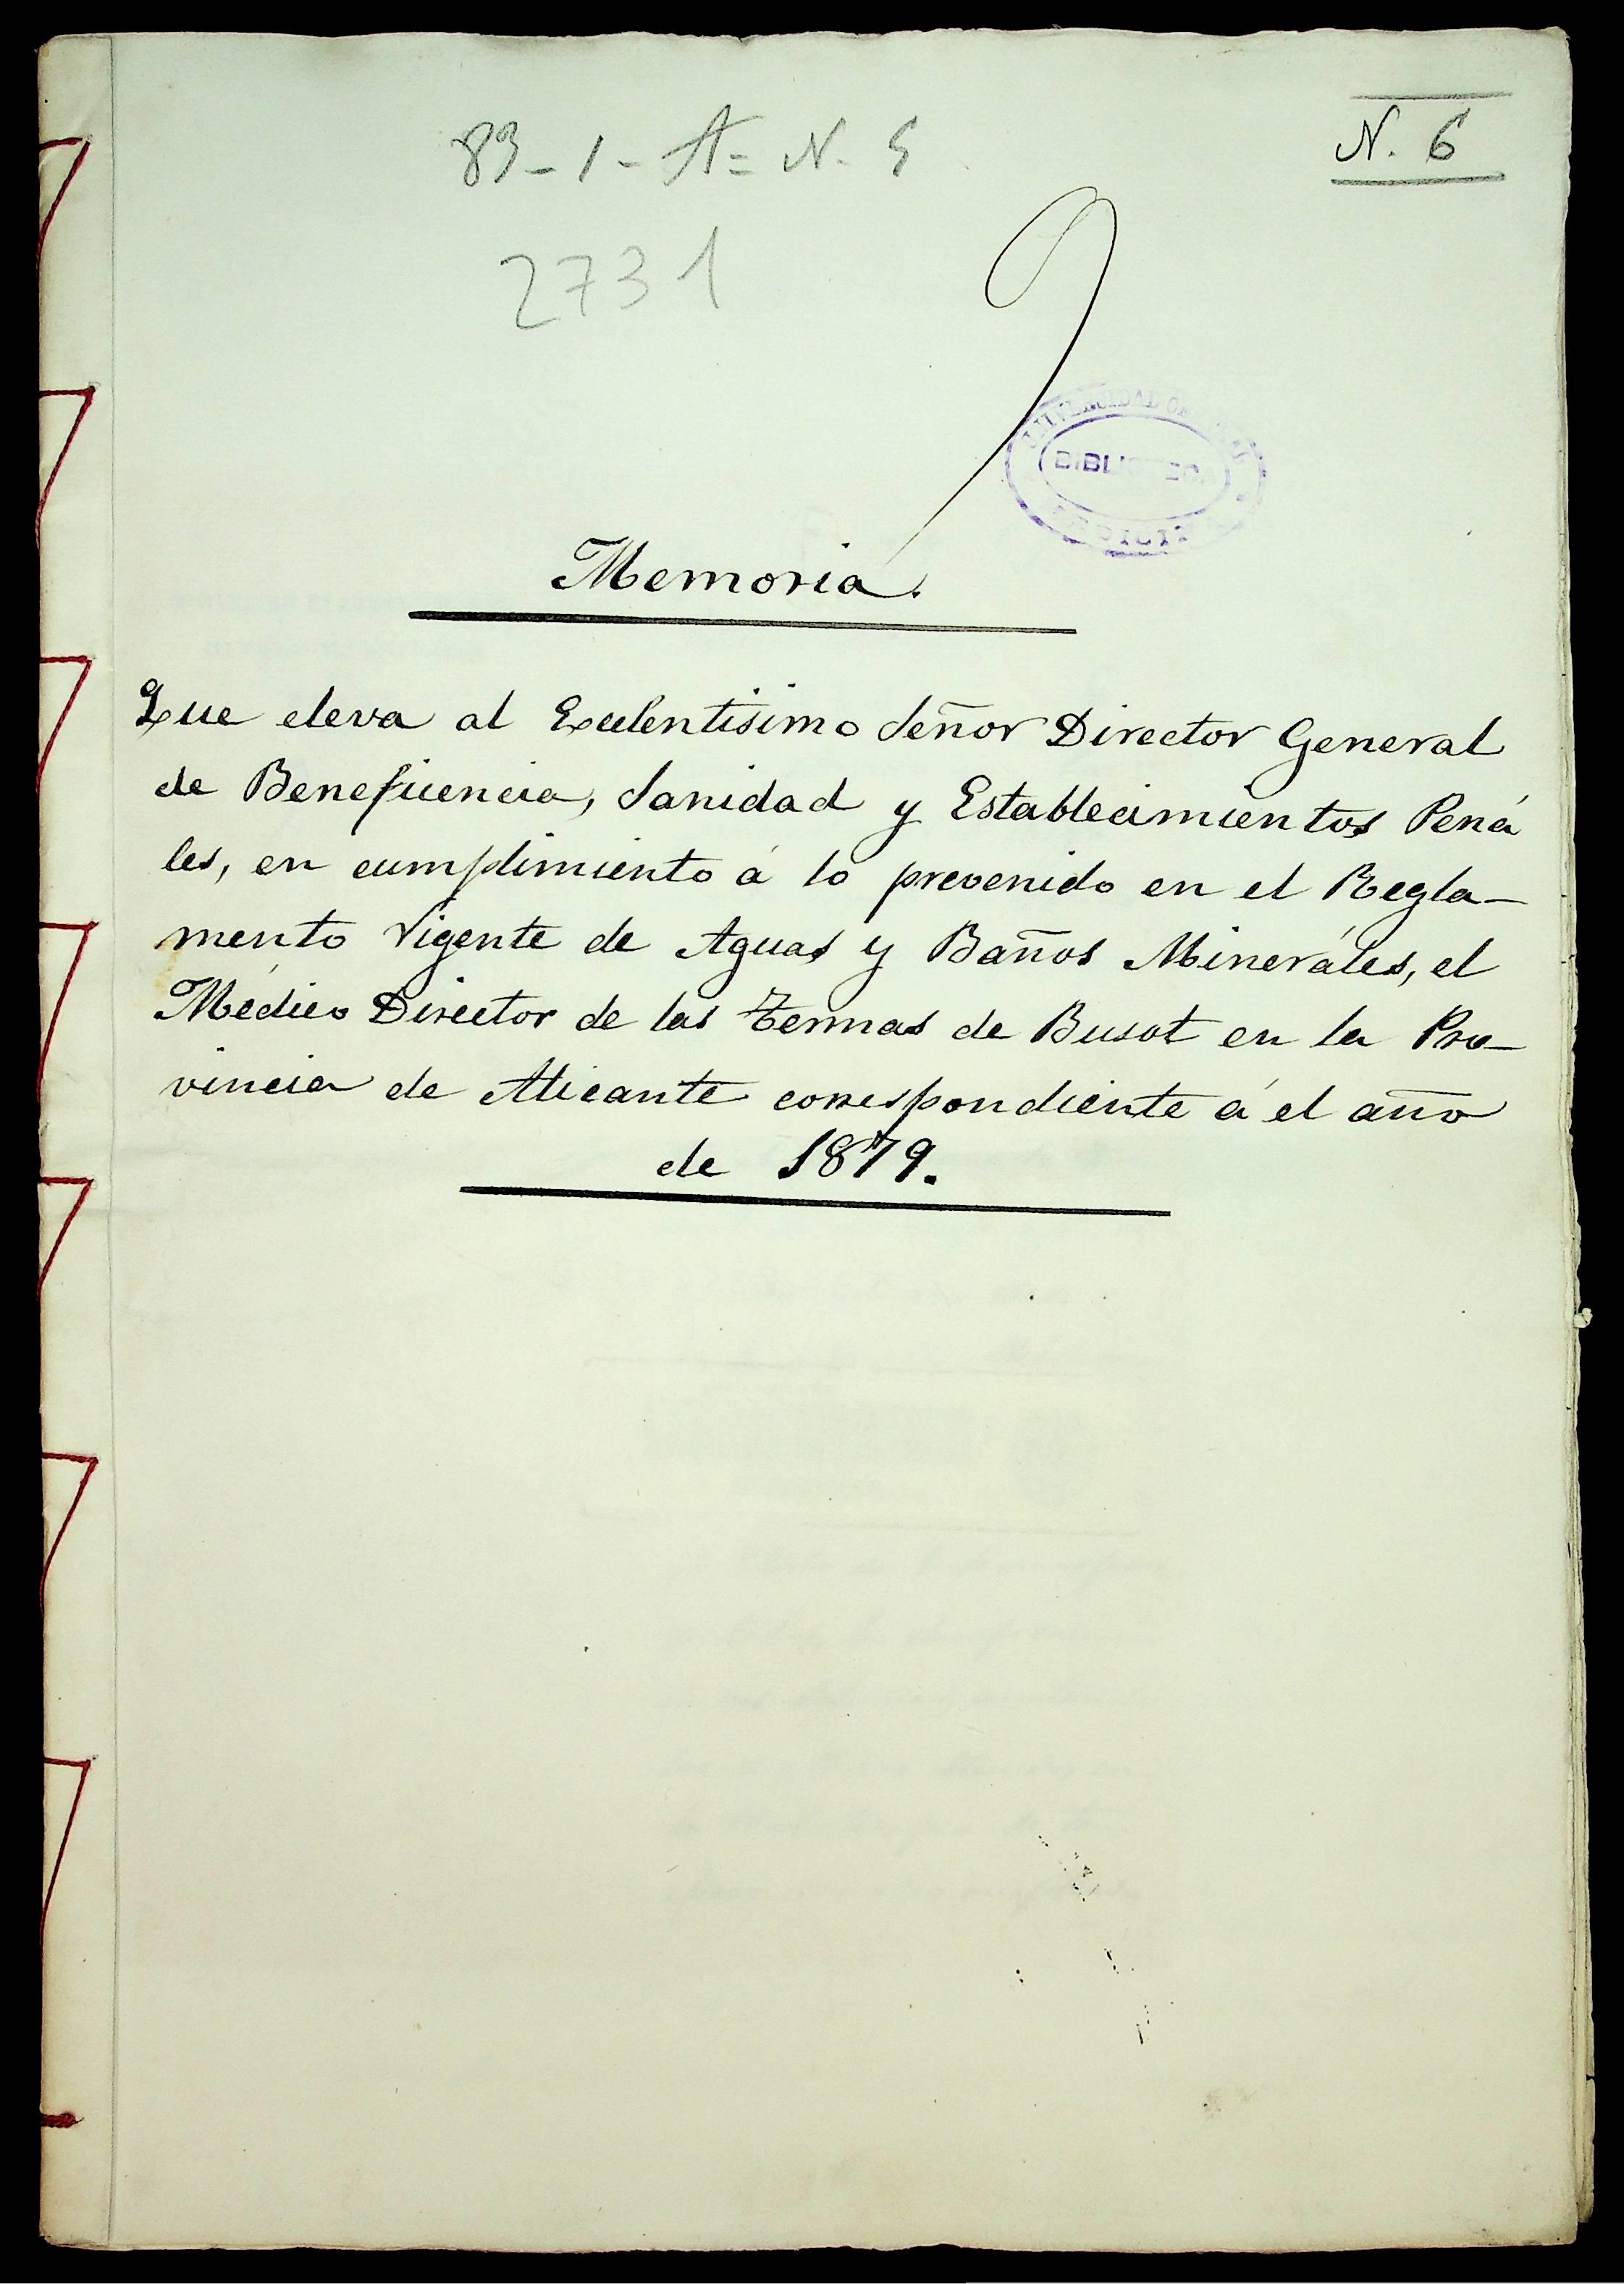 N. 6
83-1-A= N. 5
2731
BIBLIOTECA
Memoria.
Que eleva al Exelentisimo Señor Director General
de Beneficencia, Sanidad y Establecimientos Pená
les, en cumplimiento á lo prevenido en el Regla-
mento Vigente de Aguas y Baños Minerales, el
Médico Director de las Termas de Busot en la Pro-
vincia de Alicante correspondiente á el año
de 1879.